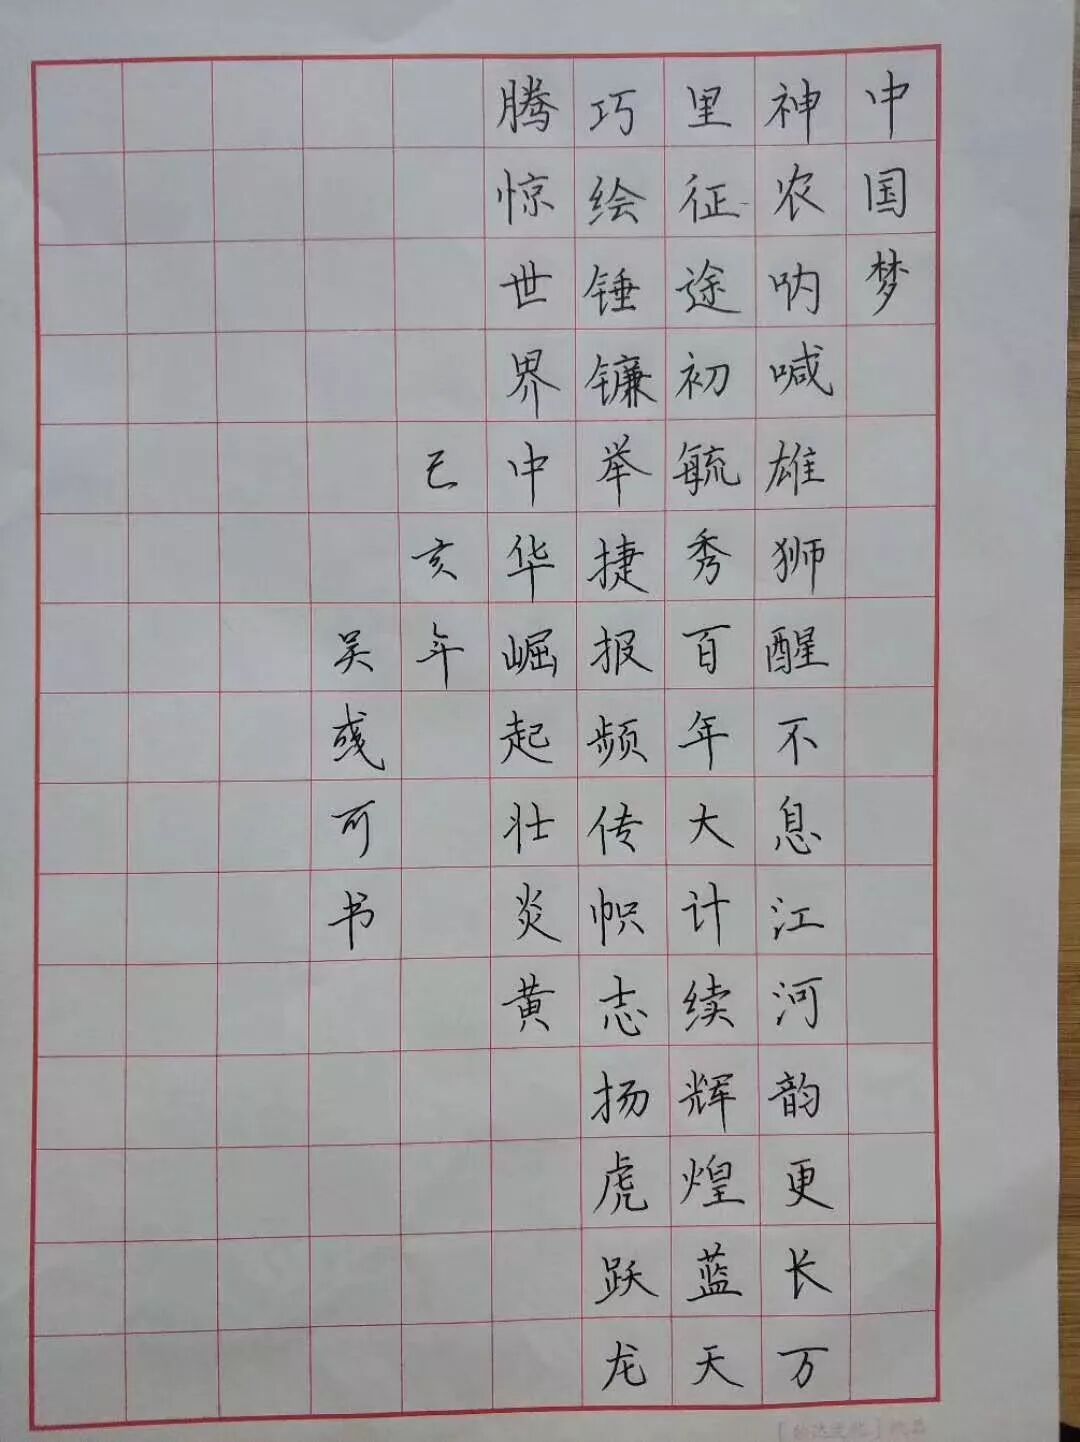 中国梦
神农呐喊雄狮醒不息江河韵更长万
里征途初毓秀百年大计续辉煌蓝天
巧绘锤镰举捷报频传帜志扬虎跃龙
腾惊世界中华崛起壮炎黄
己亥年
吴彧可书